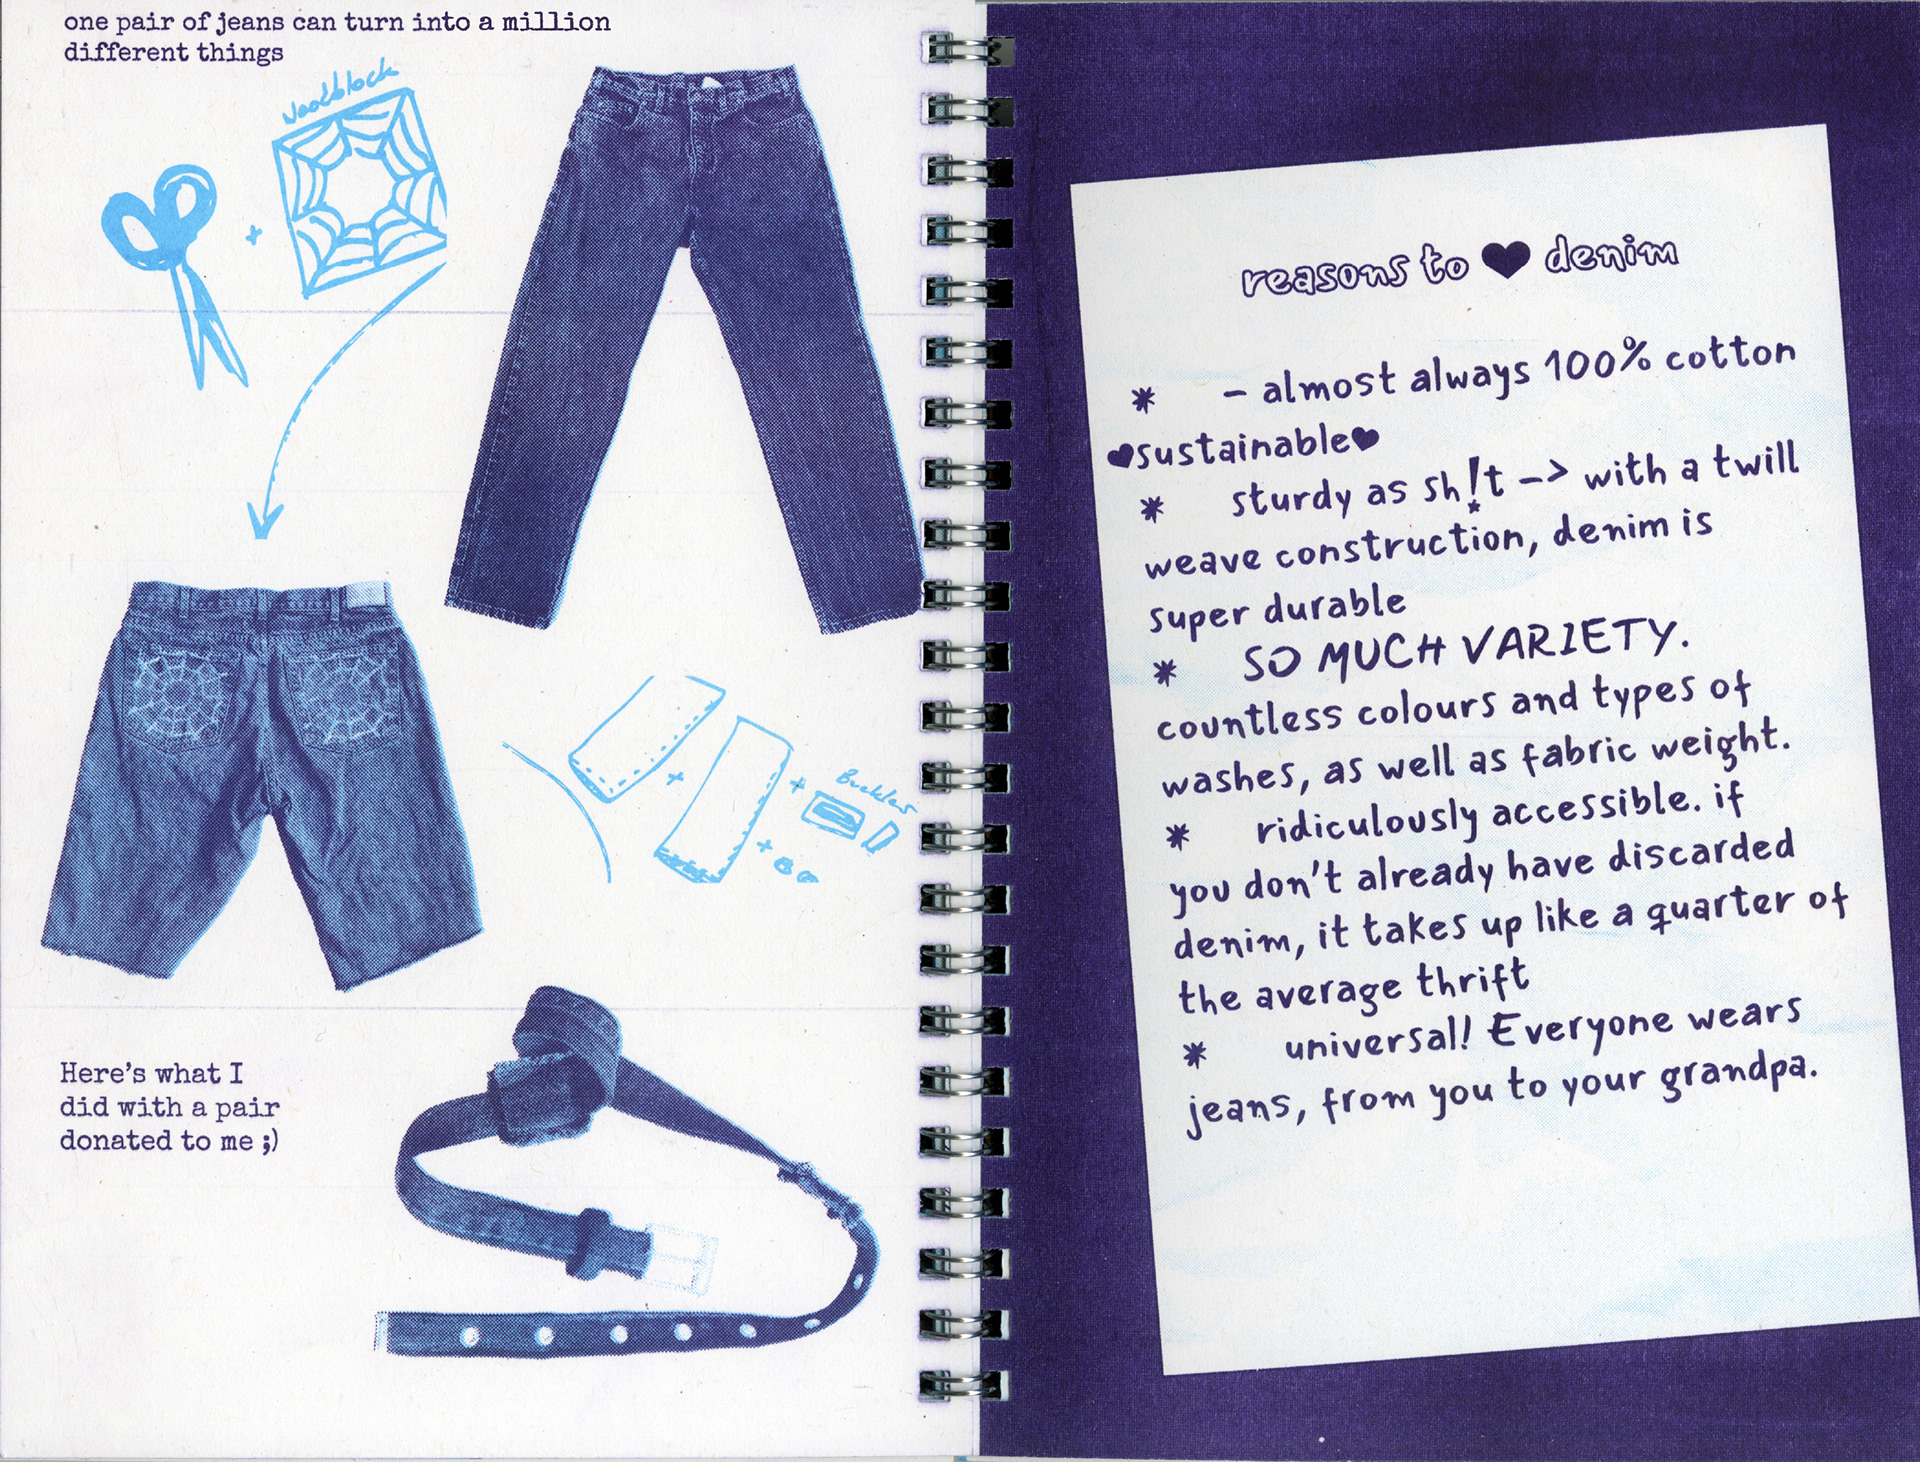 one pair of jeans can turn into a million
different things
woodblock
+
+
+
Buckles
+
Here's what I
did with a pair
donated to me ;)
reasons to ♥ denim
* - almost always 100% cotton
♥sustainable♥
* sturdy as sh!t -> with a twill
weave construction, denim is
super durable
* SO MUCH VARIETY.
countless colours and types of
washes, as well as fabric weight.
* ridiculously accessible. if
you don't already have discarded
denim, it takes up like a quarter of
the average thrift
* universal! Everyone wears
jeans, from you to your grandpa.